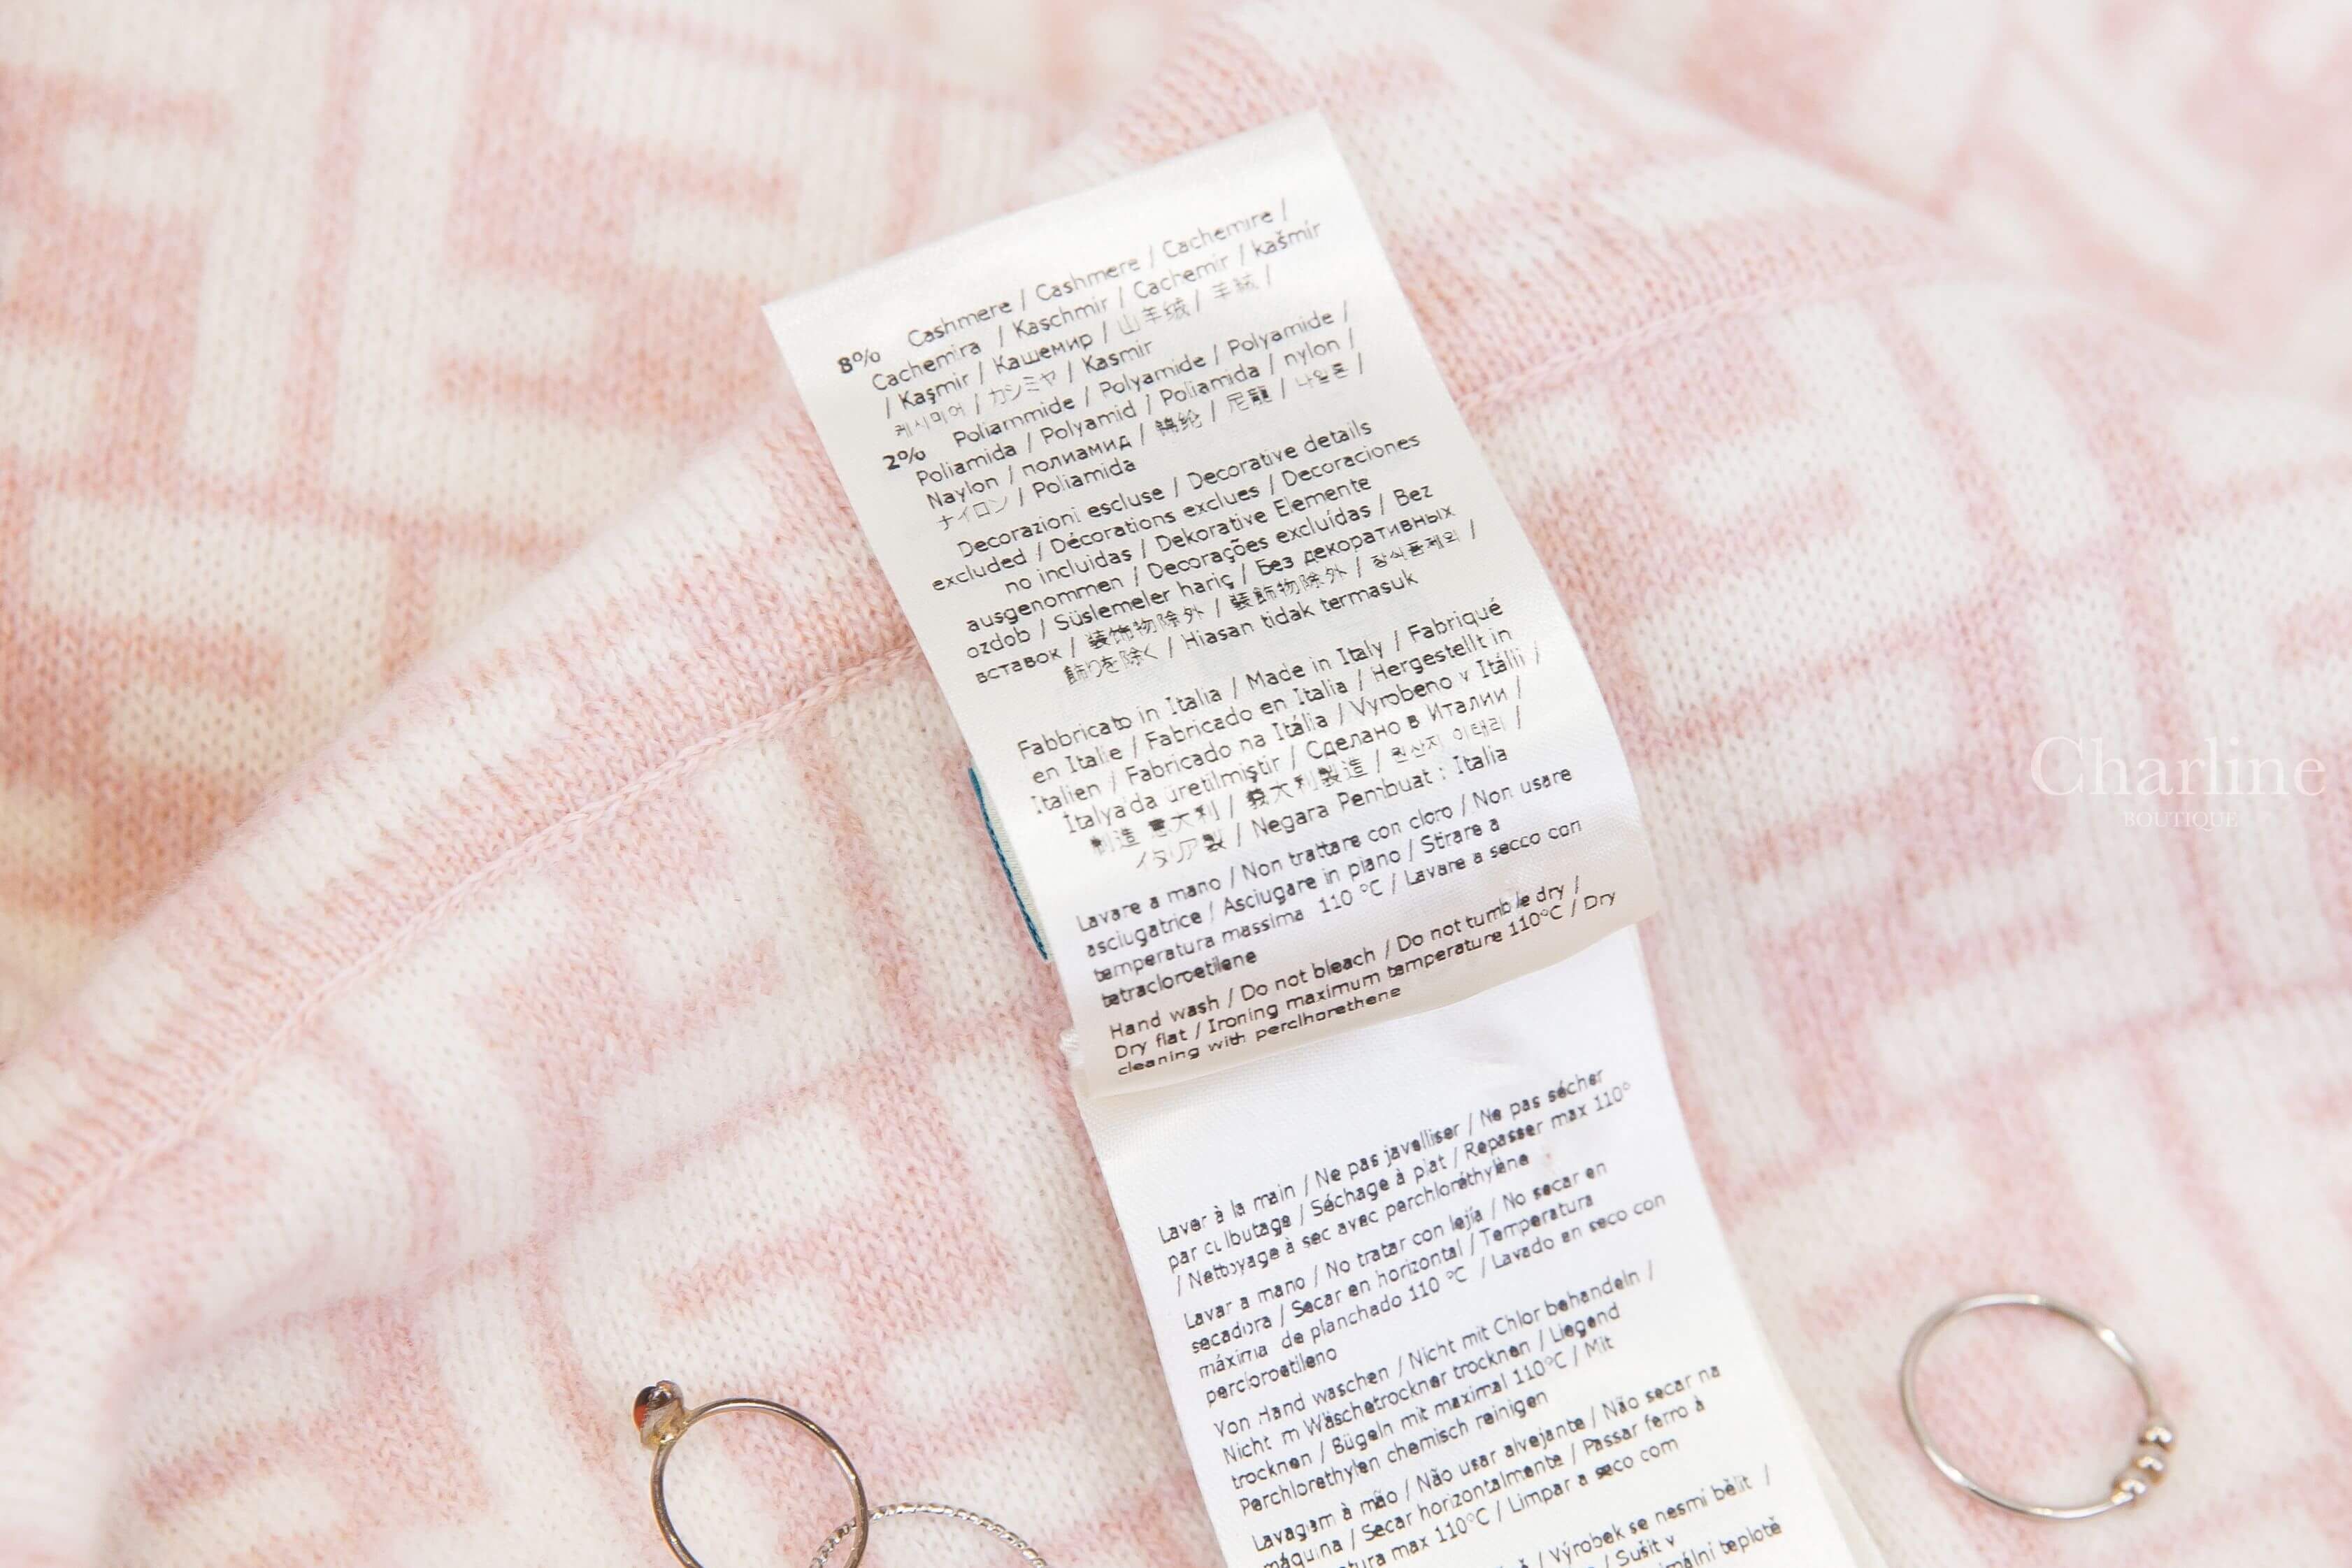 8% Cashmere / Cashmere / Cachemire /
Cachemira / Kaschmir / Cachemir / kašmir
/ Kaşmir / Кашемир / 山羊绒 / 羊絨 /
케시미어 / カシミヤ / Kasmir
2% Poliammide / Polyamide / Polyamide /
Poliamida / Polyamid / Poliamida / nylon /
Naylon / полиамид / 锦纶 / 尼龍 / 나일론 /
ナイロン / Poliamida
Decorazioni escluse / Decorative details
excluded / Décorations exclues / Decoraciones
no incluidas / Dekorative Elemente
ausgenommen / Decorações excluídas / Bez
ozdob / Süslemeler hariç / Без декоративных
вставок / 装饰物除外 / 裝飾物除外 / 장식품제외 /
飾りを除く / Hiasan tidak termasuk
Fabbricato in Italia / Made in Italy / Fabriqué
en Italie / Fabricado en Italia / Hergestellt in
Italien / Fabricado na Itália / Vyrobeno v Itálii /
İtalya'da üretilmiştir / Сделано в Италии /
制造 意大利 / 義大利製造 / 원산지 이태리 /
イタリア製 / Negara Pembuat : Italia
Lavare a mano / Non trattare con cloro / Non usare
asciugatrice / Asciugare in piano / Stirare a
temperatura massima 110 °C / Lavare a secco con
tetracloroetilene
Hand wash / Do not bleach / Do not tumble dry /
Dry flat / Ironing maximum temperature 110°C / Dry
cleaning with perclhorethene
Laver à la main / Ne pas javelliser / Ne pas sécher
par culbutage / Séchage à plat / Repasser max 110°
/ Nettoyage à sec avec perchloréthylène
Lavar a mano / No tratar con lejía / No secar en
secadora / Secar en horizontal / Temperatura
máxima de planchado 110 °C / Lavado en seco con
percloroetileno
Von Hand waschen / Nicht mit Chlor behandeln /
Nicht im Wäschetrockner trocknen / Liegend
trocknen / Bügeln mit maximal 110°C / Mit
Perchlorethylen chemisch reinigen
Lavagem à mão / Não usar alvejante / Não secar na
máquina / Secar horizontalmente / Passar ferro à
max 110°C / Limpar a seco com
/ Výrobek se nesmí bělit /
/ Sušit v
teplotě
Charline
BOUTIQUE